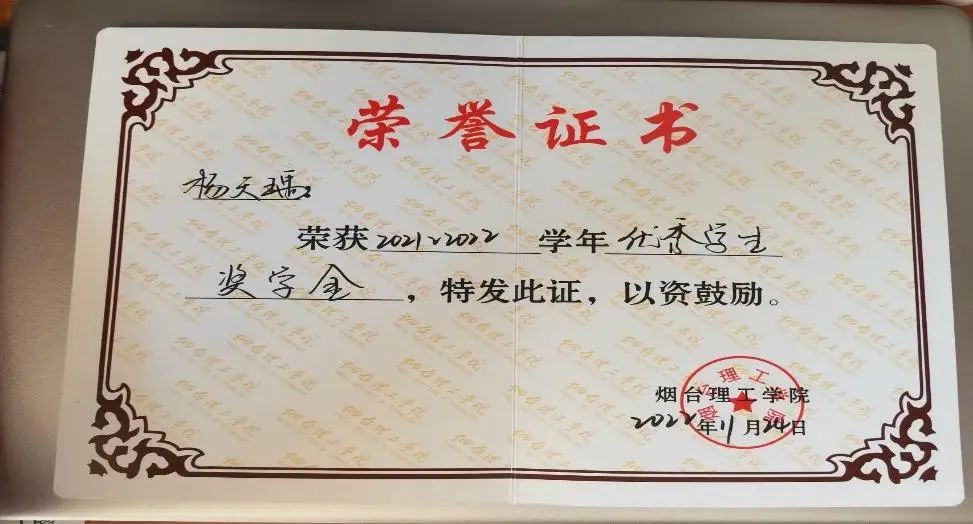 荣誉证书
杨天瑀：
荣获2021~2022学年优秀学生
奖学金，特发此证，以资鼓励。
烟台理工学院
2022年11月24日
烟台理工学院